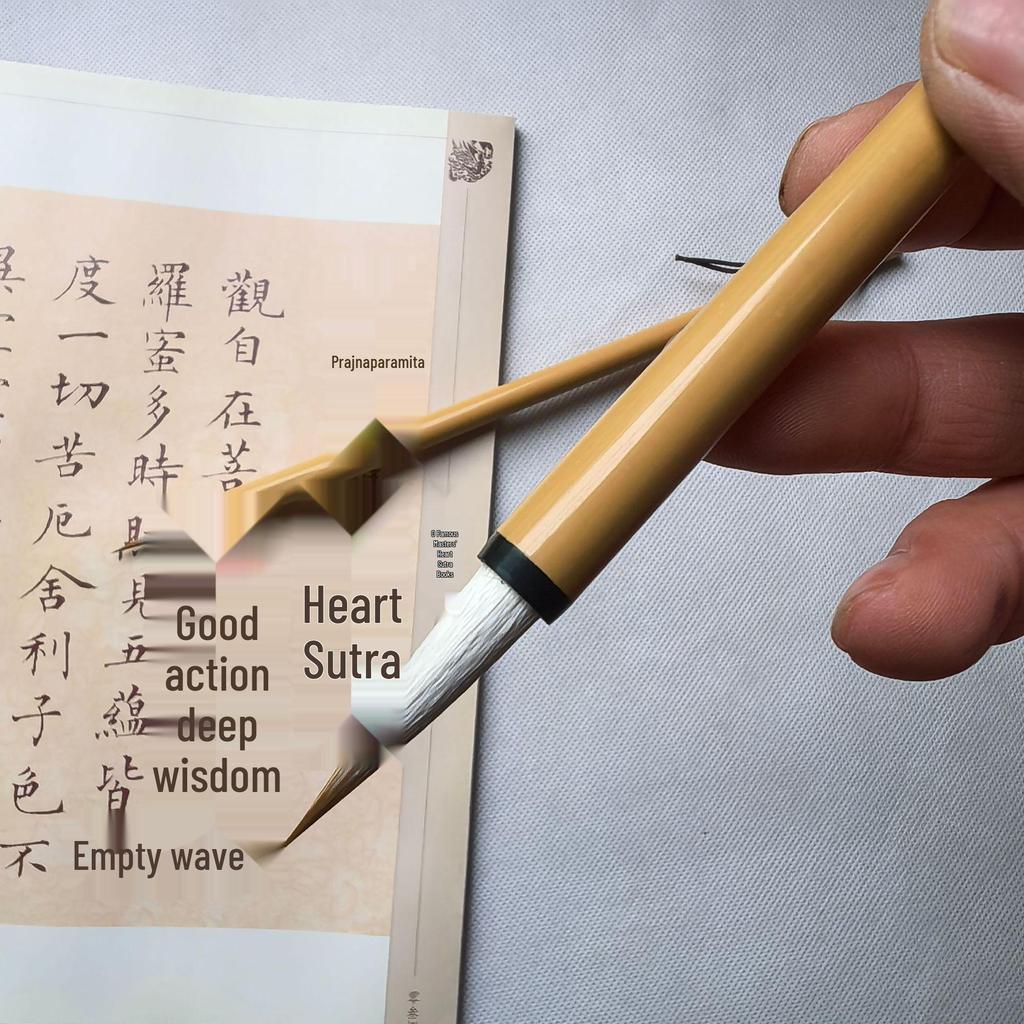 Prajnaparamita
Heart
Sutra
觀自在菩
Good
action
deep
wisdom
羅蜜多時
見五蘊皆
Empty wave
度一切苦厄舍利子色不
異
0 Famous
Masters'
Heart
Sutra
Books